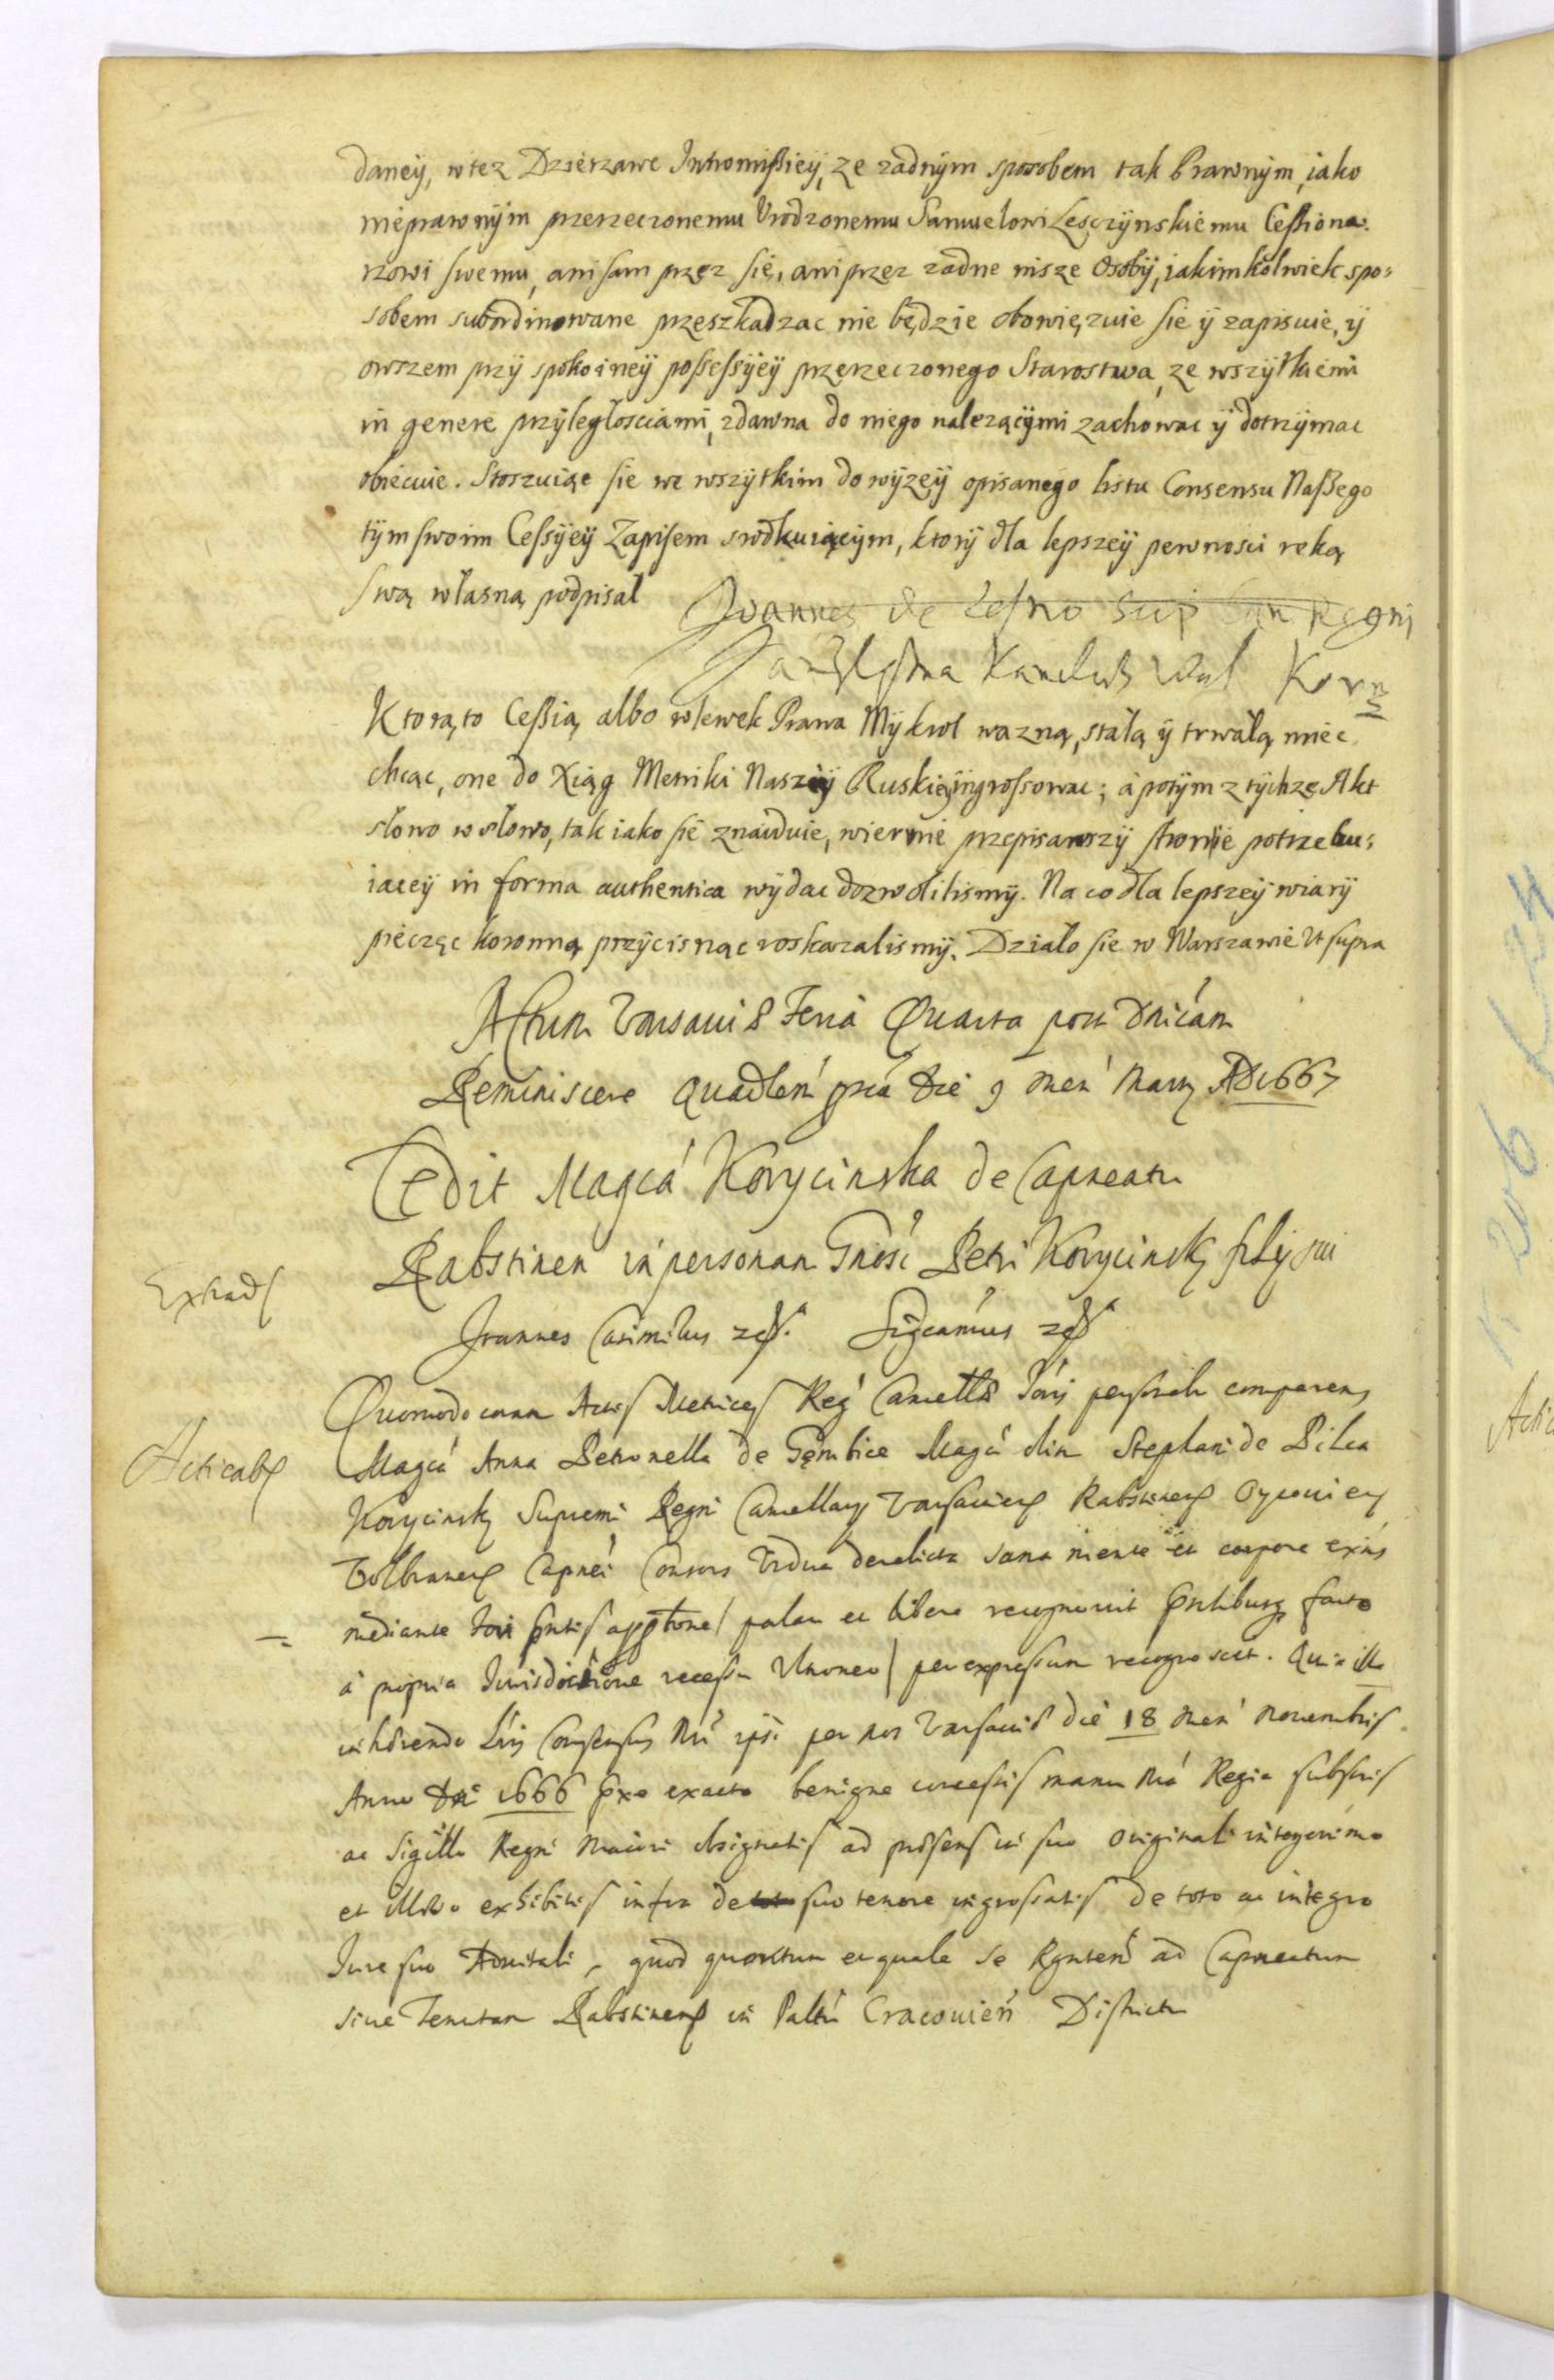 daney, w tez Dzierzawe Intromissiey, ze zadnym sposobem tak Prawnym, iako
nieprawnym przerzeczonemu Urodzonemu Samuelowi Lesczynskiemu Cessiona:
rzowi swemu, ani sam przez się, ani przez zadne nisze Osoby, iakimkolwiek spo:
sobem subordinowane przeszkadzac nie będzie obowięzuie sie y zapisuie, y
owszem przy spokoiney possessyey przerzeczonego Starostwa, ze wszytkiemi
in genere przyległosciami, zdawna do niego nalezącymi zachowac y dotrzymac
obiecuie. Stoszuiąc sie we wszytkim do wyzey opisanego listu Consensu Naszego
tym swoim Cessyey Zapisem srodkuiącym, ktory dla lepszey pewnosci reką
swą własną podpisał
Joannes de Lesno Sup Can Regni
Jan z Leszna Kanclerz Wiel Kor
Ktorą to Cessią albo wlewek Prawa My krol wazną, stałą y trwałą miec
chcąc, one do Xiąg Metriki Naszey Ruskiey ingrossowac; a potym z tychze Akt
słowo w słowo, tak iako się znaiduie, wiernie przepisawszy stronie potrzebu:
iącey in forma authentica wydac dozwolilismy. Na co dla lepszey wiary
pieczęc koronną przycisnąc roskazalismy. Działo sie w Warszawie Ut supra
Actum Varsaviæ Feria Quarta post Dnicam
Reminiscere Quadlem pria Die 9 Men Marty AD 1667
Cedit Magca Korycinska de Capneatu
Rabstinen in personam Gnosi Petri Korycinsky filÿ sui
Extrad
Joannes Casimirus Significamus
Quomodo coram Actis Metrices Reg Cancellæ Nris personalr comparens
Acticab
Magca Anna Petronella de Gębice Magci olim Stephani de Pilca
Korycinsky Supremi Regni Cancellary Varsavien Rabstinen Oycovien
Volbramen Capnei Consors Vidua derelicta sana mente et corpore exns
palam et libere recognovit
a propria Iurisdictione recessu per expressum recognoscit. Quia illa
inhærendo Lris Consensus Nri ipsi per nos Varsaviæ die 18 Men Novembris
Anno Dni 1666 exacto benigne concessis manu Nra Regia subscris
ac Sigillo Regni Maiori obsignatis ad præsens in suo Originali integerrimo
et illæso exhibitis infra de suo tenore ingrossatis de toto ac integro
Iure suo Advitali, quod quantum et quale se ad Capneatum
sive Tenutam Rabstinen in Paltu Cracovien Districtu